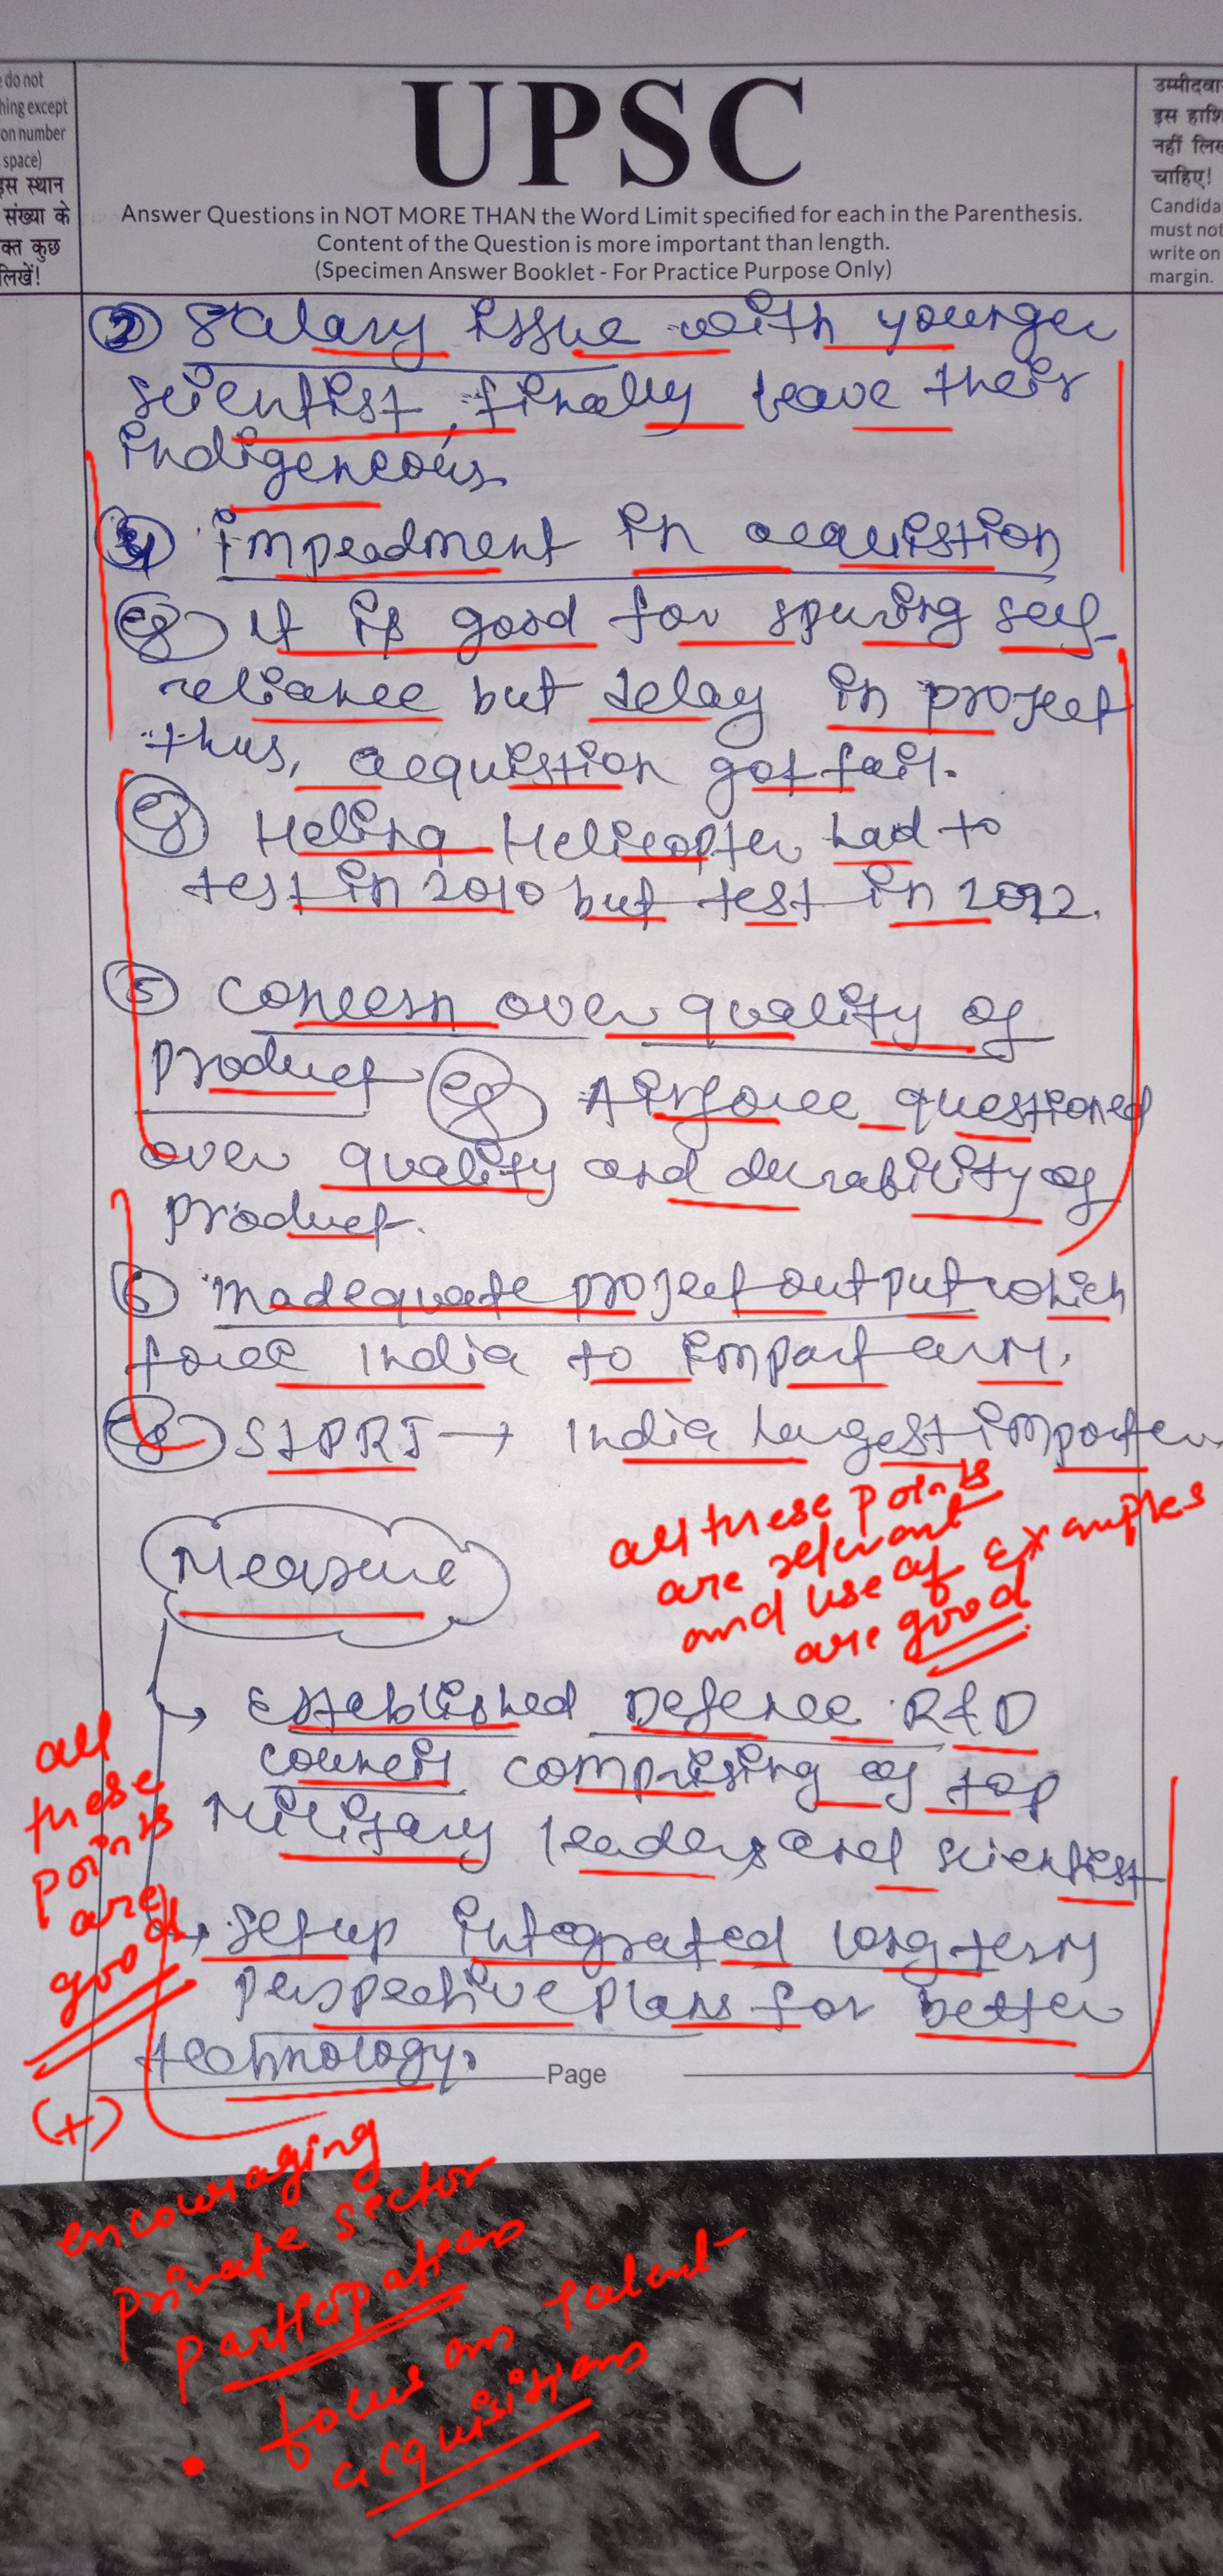 do not
hing except
on number
space)
इस स्थान
संख्या के
क्त कुछ
लिखें!
UPSC
Answer Questions in NOT MORE THAN the Word Limit specified for each in the Parenthesis.
Content of the Question is more important than length.
(Specimen Answer Booklet - For Practice Purpose Only)
उम्मीदवा
इस हाशि
नहीं लिख
चाहिए!
Candida
must not
write on
margin.
③ Salary issue with younger
scientist, finally leave their
indigeneous
④ impeadment in acquistion
eg It is good for spuring self-
reliance but delay in project
thus, acquistion got fail.
eg Helina Helicopter had to
test in 2010 but test in 2022.
⑤ Concern over quality of
Product eg Airforce questioned
over quality and durability of
product.
⑥ Inadequate project output which
force India to import arm.
eg SIPRI → India largest importer
all these points
are relevant
and use of examples
are good
Measure
→ Established Defence R&D
council comprising of top
Military leaders and scientist
→ Setup integrated long term
perspective plans for better
technology.
all
these
points
are
good
Page
(+)
encouraging
private sector
participations
• focus on talent
acquisitions